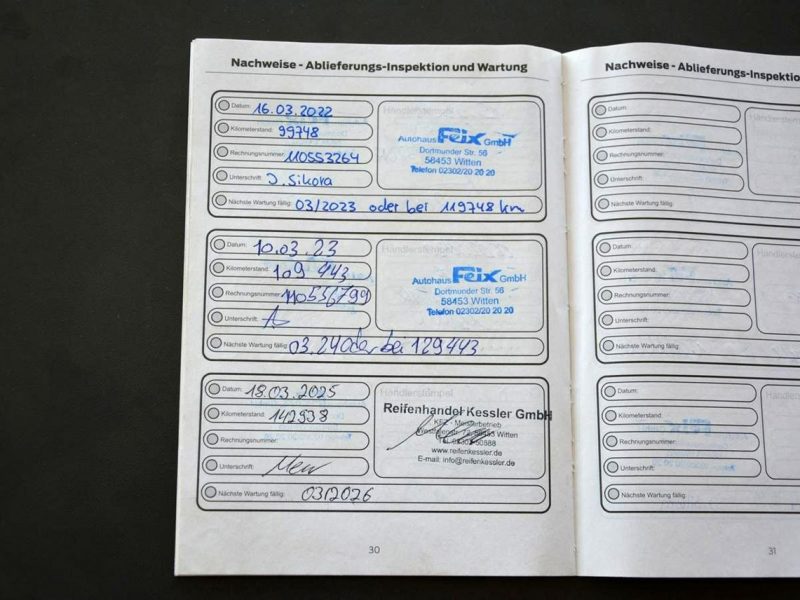 Nachweise - Ablieferungs-Inspektion und Wartung
Datum: 16.03.2022
Kilometerstand: 99748
Rechnungsnummer: 110553264
Unterschrift: J. Sikora
Nächste Wartung fällig: 03/2023 oder bei 119748 km
Händlerstempel
Autohaus Feix GmbH
Dortmunder Str. 56
58453 Witten
Telefon 02302/20 20 20
Datum: 10.03.23
Kilometerstand: 109 443
Rechnungsnummer: 110556799
Unterschrift:
Nächste Wartung fällig: 03.24 oder bei 129443
Händlerstempel
Autohaus Feix GmbH
Dortmunder Str. 56
58453 Witten
Telefon 02302/20 20 20
Datum: 18.03.2025
Kilometerstand: 142938
Rechnungsnummer:
Unterschrift:
Nächste Wartung fällig: 03/2026
Händlerstempel
Reifenhandel Kessler GmbH
Meisterbetrieb
Witten
www.reifenkessler.de
E-mail: info@reifenkessler.de
30
Nachweise - Ablieferungs-Inspektio
Datum:
Kilometerstand:
Rechnungsnummer:
Unterschrift:
Nächste Wartung fällig:
Datum:
Kilometerstand:
Rechnungsnummer:
Unterschrift:
Nächste Wartung fällig:
Datum:
Kilometerstand:
Rechnungsnummer:
Unterschrift:
Nächste Wartung fällig:
31